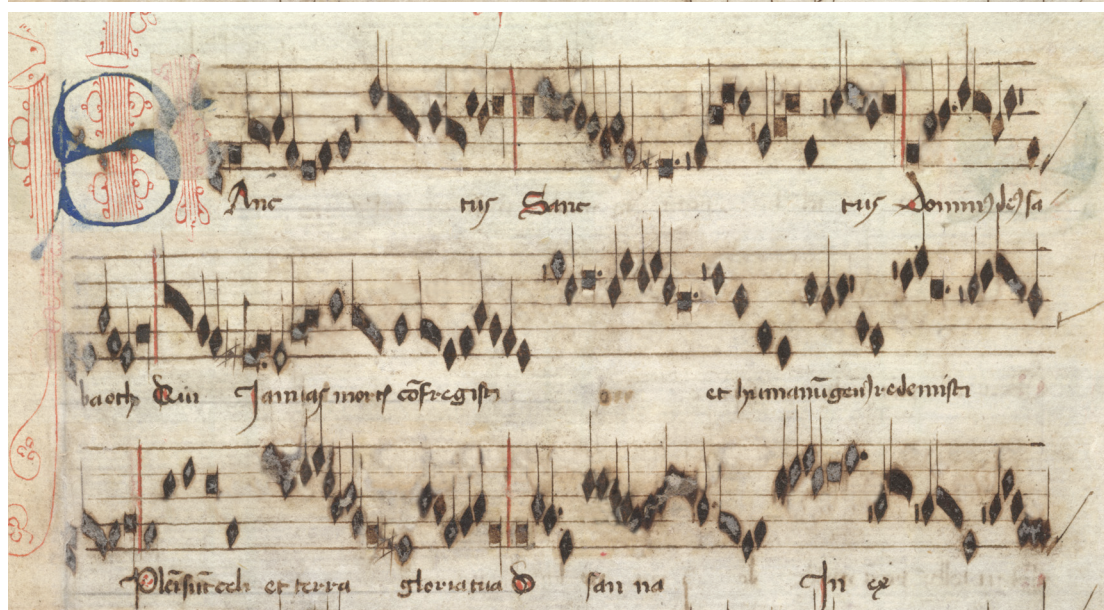 Sanc tus Sanc tus Domin9 de9 sa
baoth Qui Januas mort͛ cōfregisti et humanū gen9 redemisti
Pleni sūt celi et terra gloria tua O san na In ex